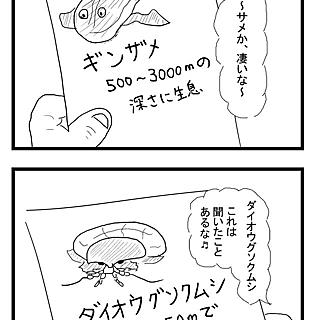 〜サメか、凄いな〜
ギンザメ
500〜3000mの
深さに生息
ダイオウグソクムシ
これは
聞いたこと
あるな♫
ダイオウグソクムシ
50mで